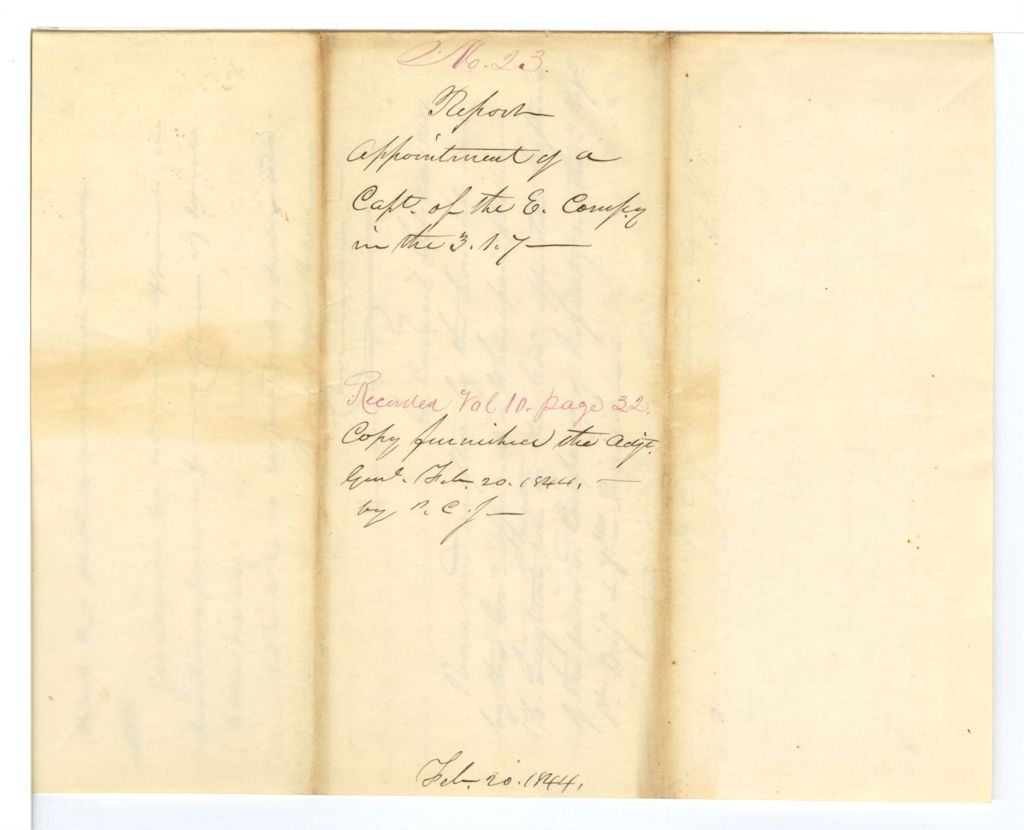 No. 23.
Report
Appointment of a
Capt. of the E. Compy
in the 3. 1. 7—
Recorded Vol 10. page 32.
Copy furnished the Adjt.
Genl. Feb. 20. 1844. —
by P. C. J—
Feb. 20. 1844.